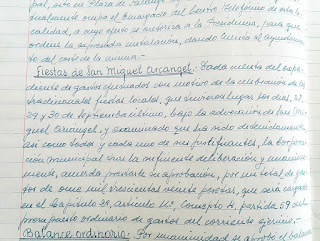 pal, sito en Plaza de
qualmente ocupa el Encargado del Centro Telefónico de esta lo-
calidad, a cuyo efecto se autoriza a la Presidencia, para que
ordene la expresada instalación, dando cuenta al ayuntamiento
del coste de la misma.-
Fiestas de San Miguel Arcangel.- Dada cuenta del expe-
diente de gastos efectuados con motivo de la celebración de las
tradicionales fiestas locales, que tuvieron lugar los dias, 28,
29, y 30 de Septiembre último, bajo la advocación de San Mi-
guel Arcangel, y examinado que ha sido detenidamente,
así como todos y cada uno de sus justificantes, la Corpora-
ción municipal tras la suficiente deliberación, y unanime-
mente, acuerda prestarle su aprobación, por un total de gas-
tos de once mil trescientas veinte pesetas, que será cargada
en el Capítulo 2º, artículo 1º, Concepto 4, partida 59 del
presupuesto ordinario de gastos del corriente ejercicio.-
Balance ordinario: Por unanimidad se aprobó el balance